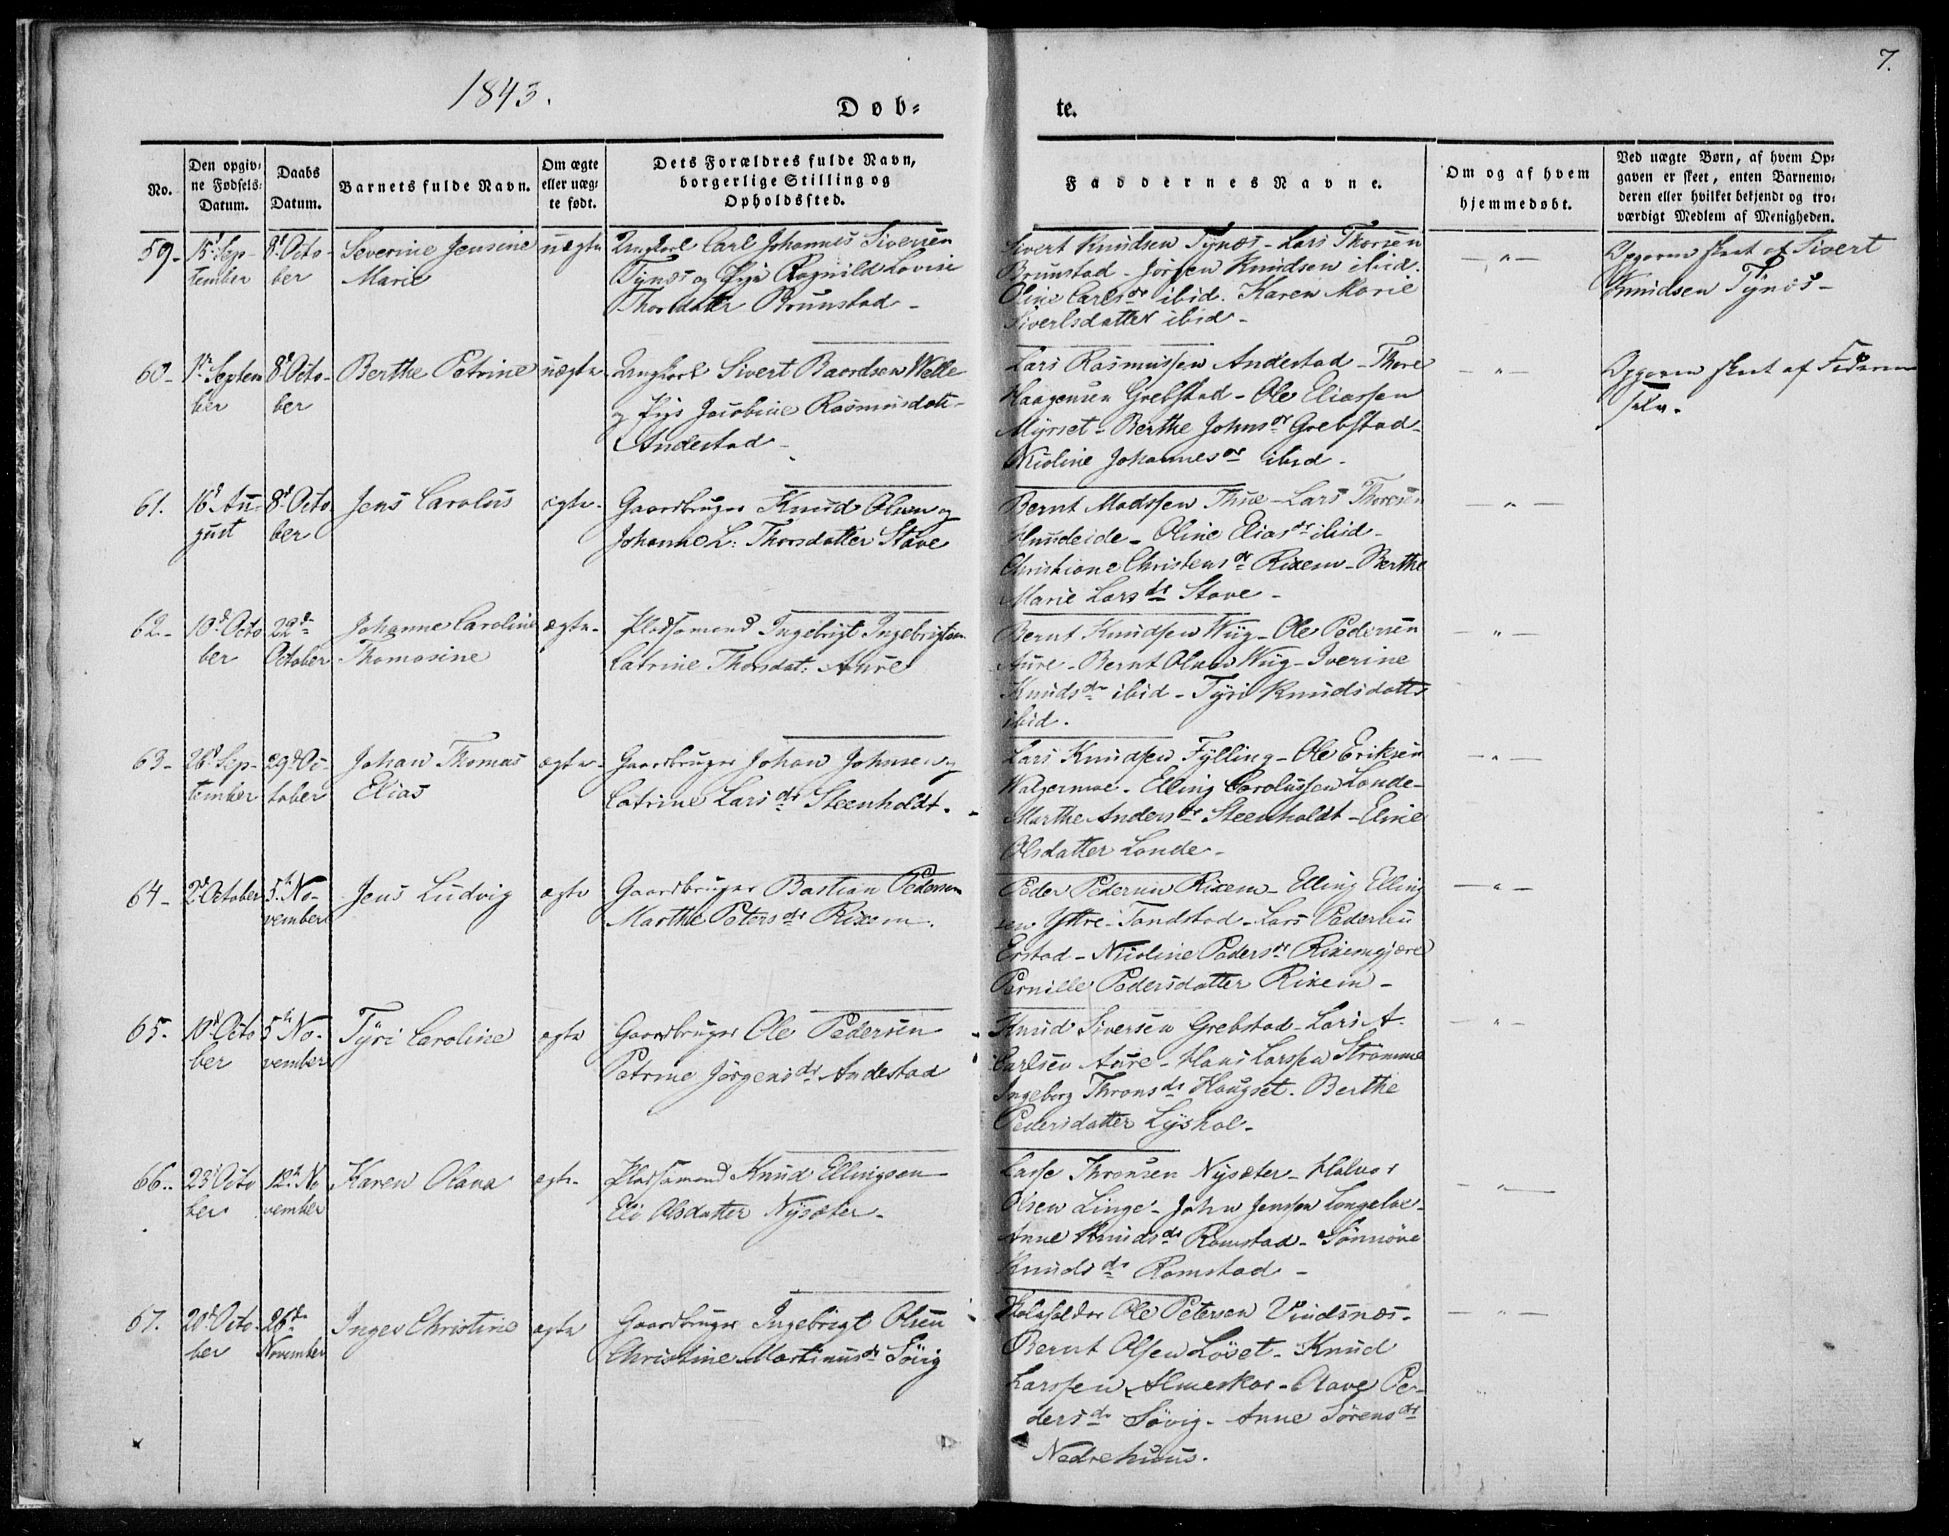 7.
1843.
Døb-
te.
No.
Den opgiv-
ne Fødsels-
Datum.
Daabs
Datum.
Barnets fulde Navn.
Om ægte
eller uæg-
te født.
Dets Forældres fulde Navn,
borgerlige Stilling og
Opholdssted.
Faddernes Navne.
Om og af hvem
hjemmedøbt.
Ved uægte Børn, af hvem Op-
gaven er skeet, enten Barnemo-
deren eller hvilket bekjendt og tro-
værdigt Medlem af Menigheden.
59-
15d Sep-
tember
8d Octo-
ber
Severine Jensine
Marie
uægte
Ungkarl Carl Johannes Siversen
Tynes og Pige Ragnild Lovise
Thorsdatter Brunstad -
Sivert Knudsen Tynes - Lars Thorsen
Brunstad - Jørgen Knudsen ibid.
Oline Carlsdr ibid. Karen Marie
Sivertsdatter ibid -
- " -
Opgaven skeet af Sivert
Knudsen Tynes -
60-
1ste Septem
ber
8d Octo-
ber
Berthe Petrine
uægte
Ungkarl Sivert Baardsen Welle
og Pige Jacobine Rasmusdatt-
Andestad -
Lars Rasmussen Andestad - Thore
Haagensen Grebstad - Ole Eliassen
Myrset - Berthe Johnsdr Grebstad -
Nicoline Johannesdr ibid -
- " -
Opgaven skeet af Faderen
selv.
61.
16d Au-
gust
8d Octo
ber
Jens Carolus
ægte -
Gaardbruger Knud Olsen og
Johanne L: Thorsdatter Stave
Bernt Madssen Thue - Lars Thoresen
Hundeide - Oline Eliasdr ibid -
Christiane Christensdr Rixem - Berthe
Marie Larsdr Stave -
- " -
62-
10d Octo
ber
22de
October
Johanne Caroline
Thomasine
ægte -
Pladsmand Ingebrigt Ingebrigtsen
Catrine Thorsdat: Aure
Bernt Knudsen Wiig - Ole Pedersen
Aure - Bernt Olsen Wiig - Iverine
Knudsdr ibid - Tyri Knudsdatter
ibid.
- " -
63-
26d Sep-
tember
29d Oc-
tober
Johan Thomas
Elias
ægte -
Gaardbruger Johan Johnsen og
Catrine Larsdr Steenholdt.
Lars Knudsen Fylling - Ole Eriksen
Walgermoe - Elling Carolussen Lande -
Marthe Andersdr Steenholdt - Eline
Olsdatter Lande -
- " -
64-
2d October
5te No-
vember
Jens Ludvig
ægte
Gaardbruger Bastian Pedersen
Marthe Petersdr Rixem.
Peder Pedersen Rixem - Elling Elling
sen Yttre-Tandstad - Lars Pedersen
Erstad - Nicoline Pedersdr Rixemgjære
Pernille Pedersdatter Rixem -
- " -
65-
10d Octo
ber
5te No-
vember
Tyri Caroline
ægte
Gaardbruger Ole Pedersen
Petrine Jørgensdr Andestad
Knud Siversen Grebstad - Lars A.
Carlsen Aure - Hans Larssen Strømme
Ingeborg Thronsdr Haugset. Berthe
Pedersdatter Lyshol -
- " -
66-
23d Octo
ber
12te No
vember
Karen Olava
ægte
Pladsmand Knud Ellingsen
Eli Olsdatter Nysæter -
Lasse Thronsen Nysæter - Halvor
Olsen Linge - John Jenssen Langeloe -
Anne Knudsdr Ramstad - Sønnøve
Knudsdr Ramstad -
- " -
67.
20d Octo-
ber
26de
November
Inger Christine
ægte
Gaardbruger Ingebrigt Olsen
Christine Martinusdr Søvig
Ole Petersen Vindsnæs -
Bernt Olsen Løvet - Knud
Larssen Almeskar - Olave Pe-
dersdr Søvig - Anne Sørensdr
Nedrehuus.
- " -